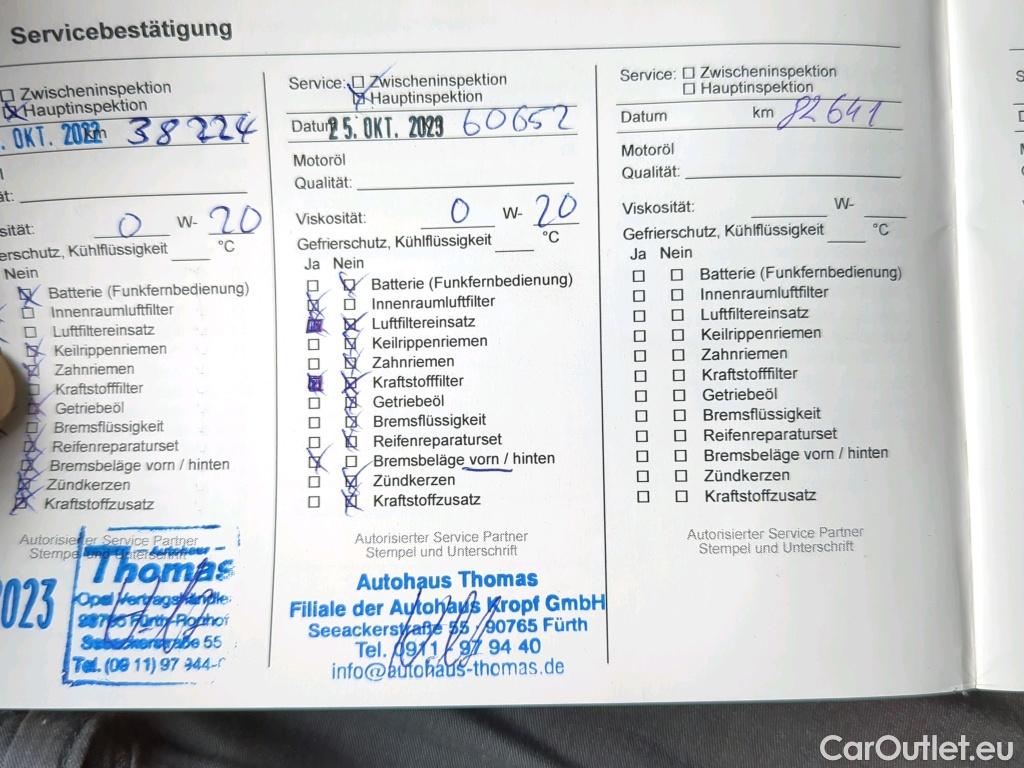 Servicebestätigung
Zwischeninspektion
Hauptinspektion
. OKT. 2022 km 38224
ät:
sität: 0 W- 20
erschutz, Kühlflüssigkeit °C
Nein
Batterie (Funkfernbedienung)
Innenraumluftfilter
Luftfiltereinsatz
Keilrippenriemen
Zahnriemen
Kraftstofffilter
Getriebeöl
Bremsflüssigkeit
Reifenreparaturset
Bremsbeläge vorn / hinten
Zündkerzen
Kraftstoffzusatz
Autorisierter Service Partner
Stempel und Unterschrift
023
Thomas
Opel Vertragshändle
Seeackerstraße 55
Tel. (09 11) 97 944-
Service: Zwischeninspektion
Hauptinspektion
Datum 25. OKT. 2023 60652
Motoröl
Qualität:
Viskosität: 0 W- 20
Gefrierschutz, Kühlflüssigkeit °C
Ja Nein
Batterie (Funkfernbedienung)
Innenraumluftfilter
Luftfiltereinsatz
Keilrippenriemen
Zahnriemen
Kraftstofffilter
Getriebeöl
Bremsflüssigkeit
Reifenreparaturset
Bremsbeläge vorn / hinten
Zündkerzen
Kraftstoffzusatz
Autorisierter Service Partner
Stempel und Unterschrift
Autohaus Thomas
Filiale der Autohaus Kropf GmbH
Seeackerstraße 55 · 90765 Fürth
Tel. 0911 - 97 94 40
info@autohaus-thomas.de
Service: Zwischeninspektion
Hauptinspektion
Datum km 82641
Motoröl
Qualität:
Viskosität: W-
Gefrierschutz, Kühlflüssigkeit °C
Ja Nein
Batterie (Funkfernbedienung)
Innenraumluftfilter
Luftfiltereinsatz
Keilrippenriemen
Zahnriemen
Kraftstofffilter
Getriebeöl
Bremsflüssigkeit
Reifenreparaturset
Bremsbeläge vorn / hinten
Zündkerzen
Kraftstoffzusatz
Autorisierter Service Partner
Stempel und Unterschrift
CarOutlet.eu